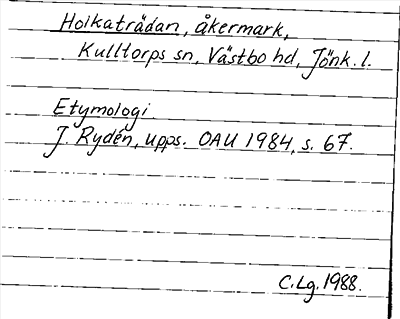 Holkaträdan, åkermark,
Kulltorps sn, Västbo hd, Jönk. l.
Etymologi
J. Rydén, upps. OAU 1984, s. 67.
C. Lg. 1988.